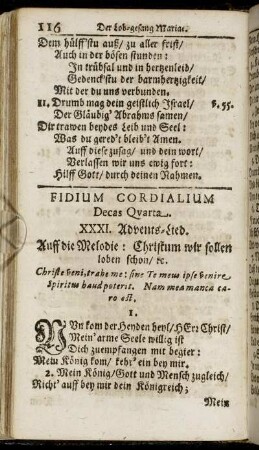 116 Der Lob-gesang Mariae.
Dem hülff'stu auß/ zu aller frist/
Auch in der bösen stunden:
In trübsal und in hertzenleid/
Gedenck'stu der barmhertzigkeit/
Mit der du uns verbunden.
11. Drumb mag dein geistlich Israel/ v. 55.
Der Gläubig' Abrahms samen/
Dir trawen beydes Leib und Seel:
Was du gered't bleib't Amen.
Auff diese zusag/ und dein wort/
Verlassen wir uns ewig fort:
Hilff Gott/ durch deinen Nahmen.
FIDIUM CORDIALIUM
Decas Qvarta.
XXXI. Advents-Lied.
Auff die Melodie: Christum wir sollen
loben schon/ &c.
Christe veni, trahe me: sine Te meus ipse venire
Spiritus haud poterit. Nam mea manca ca-
ro est.
1.
NUn kom der Heyden heyl/ HErr Christ/
Mein' arme Seele willig ist
Dich zuempfangen mit begier:
Mein König kom/ kehr' ein bey mir.
2. Mein König/ Gott und Mensch zugleich/
Richt' auff bey mir dein Königreich;
Mein